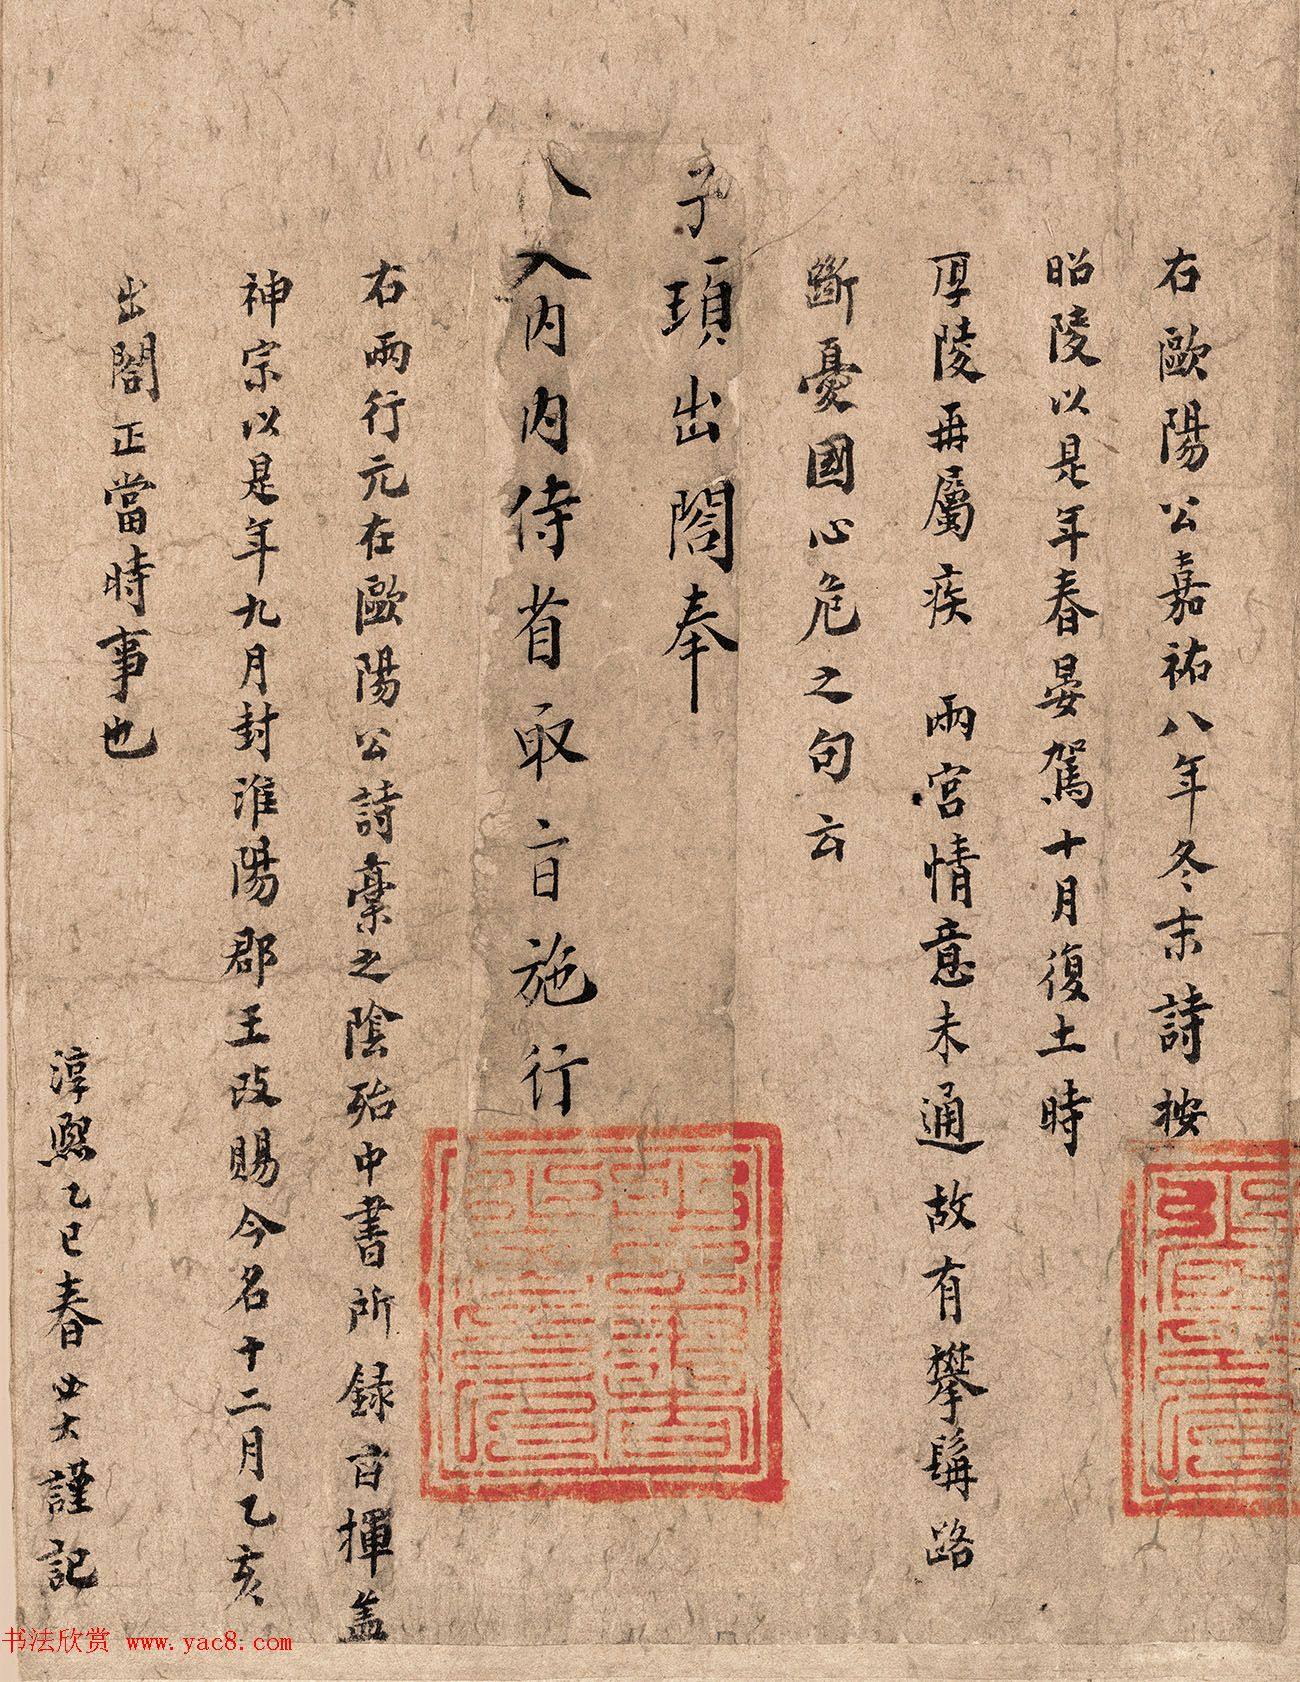 右歐陽公嘉祐八年冬末詩按
昭陵以是年春晏駕十月復土時
厚陵再屬疾 兩宮情意未通故有攀髯路
斷憂國心危之句云
子頊出閤奉
入內內侍省取旨施行
右兩行元在歐陽公詩藁之陰殆中書所錄旨揮盖
神宗以是年九月封淮陽郡王改賜今名十二月乙亥
出閤正當時事也
淳熙乙巳春 謹記
书法欣赏 www.yac8.com